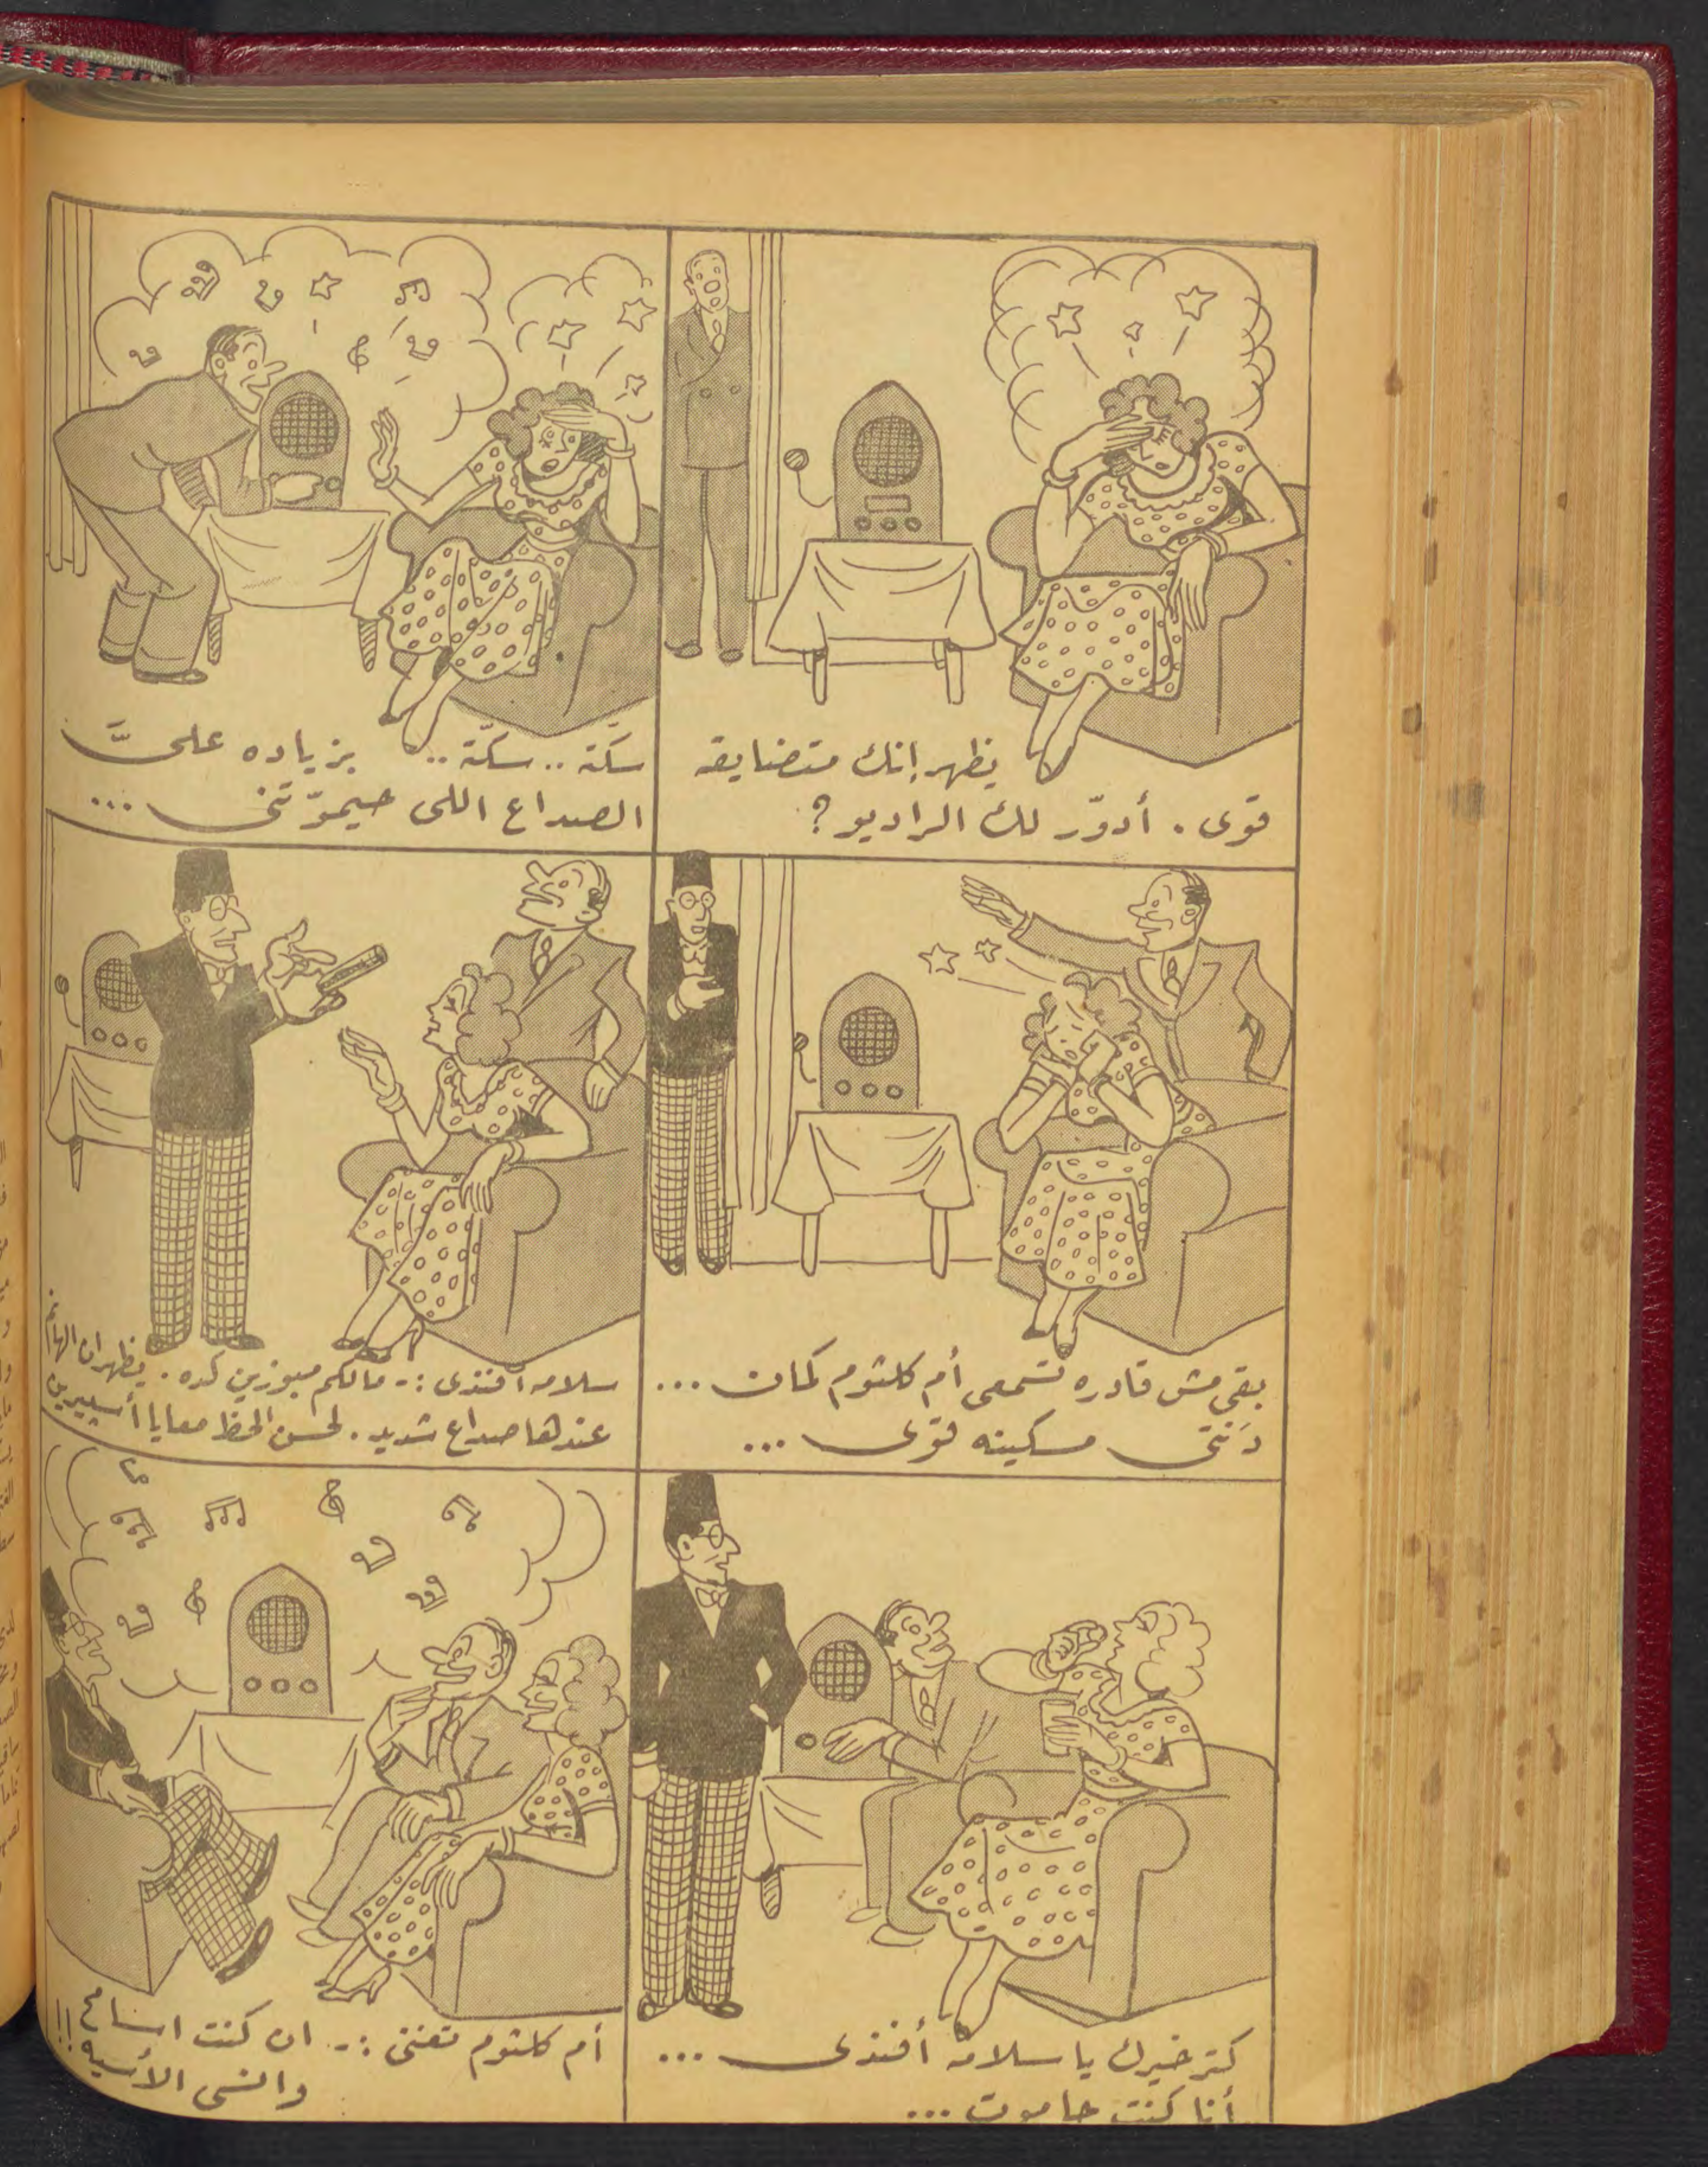 يظهر إنك متضايقه
قوى . أدوّر لك الراديو ؟
سكّتة .. سكّتة .. بزياده علىَّ
الصداع اللى حيموّتنى ...
بقى مش قادره تسمعى أم كلثوم كمان ...
دَنتى مسكينه قوى ...
سلامه افندى :- مالكم مبوزين كده . يظهر ان الهانم
عندها صداع شديد . لحسن الحظ معايا أسبيرين
كتر خيرك يا سلامه أفندى ...
أنا كنت حاموت ...
أم كلثوم تغنى :- ان كنت اسامح
وانسى الأسيه !!